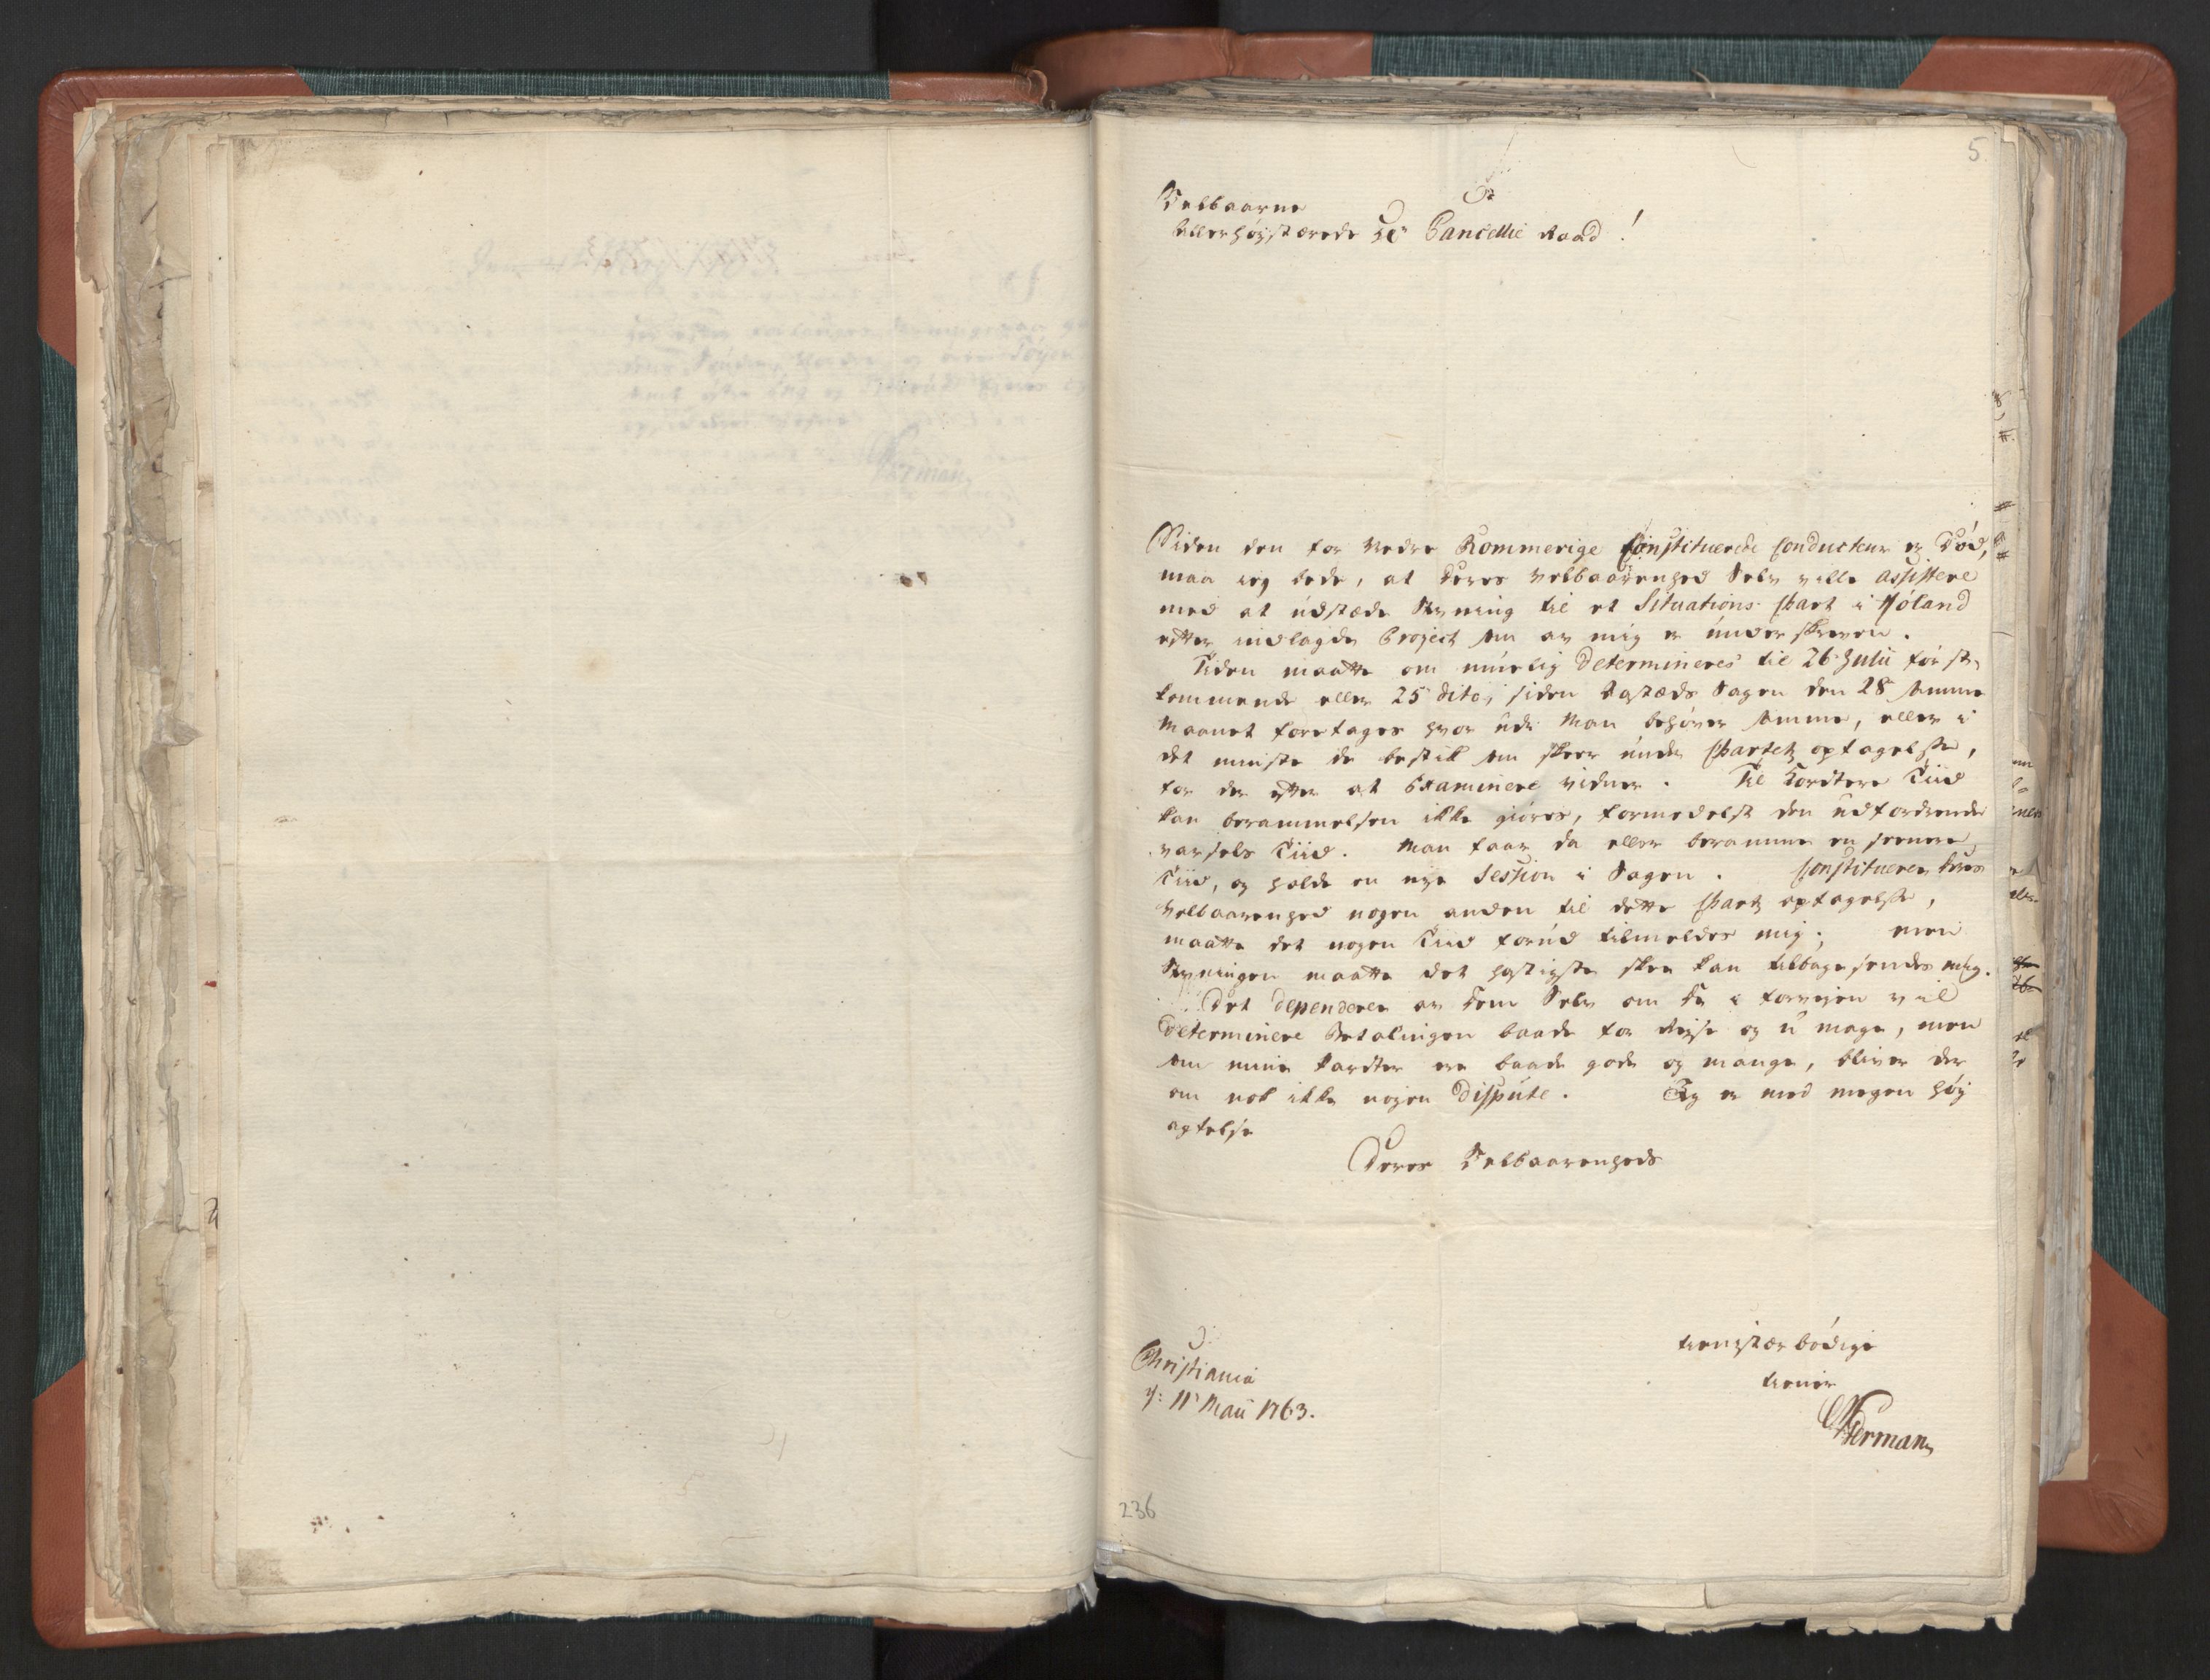 5
Velbaarne
Allerhöystærede Hr Cancellie Raad!
Siden den for Nedre Rommerige Constituerede Conducteur er Död,
maa ieg bede, at Deres Velbaarenhed Selv ville assistere
med at udstæde Styrning til et Situations Chart i Höland
efter indlagde Project som av mig er under skreven.
Tiden maatte om muelig determineres til 26 Julii först
kommende eller 25 dito, siden Aastæds Sagen den 28 samme
Maanet foretages hvor udi Man behöver samme, eller i
det minste de bestik som skeer under Chartets optagelse,
for der efter at Examinere vidner. Til kortere Tiid
kan berammelsen ikke giöres, formedelst den udfordrende
varsels Tiid. Man faar da eller beramme en seenere
Tiid, og holde en nye Session i Sagen. Constituerer Deres
Velbaarenhed nogen anden til dette Charts optagelse,
maatte det nogen Tiid forud tilmeldes mig; men
Styrningen maatte det hastigste skee kan tilbage sendes mig.
Det dependerer av Dem Selv om De i forvejen vil
determinere Betalingen baade for Reyse og u mage, men
om mine kardter ere baade gode og mange, bliver der
om nok ikke nogen dispute. Jeg er med megen höy
agtelse
Deres Velbaarenheds
Christiania
d: 11 Maii 1763.
tienstær bödige
tiener
Werman
236